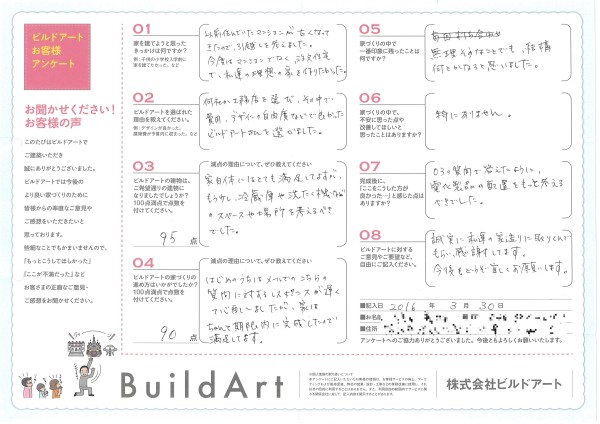 ビルドアート
お客様
アンケート
お聞かせください!
お客様の声
このたびはビルドアートで
ご建築いただき
誠にありがとうございました。
ビルドアートでは今後の
より良い家づくりのために
皆様からの率直なご意見や
ご感想をいただきたいと
思っております。
些細なことでもかまいませんので、
「もっとこうしてほしかった」
「ここが不満だった」など
お客さまの正直なご意見・
ご感想をお聞かせください。
01
家を建てようと思った
きっかけは何ですか?
例：子供の小学校入学前に
家を建てたかった。など
以前住んでいたマンションが古くなって
きたので、引越しを考えました。
今度はマンションでなく、注文住宅
で、私達の理想の家を作りたかった。
02
ビルドアートを選ばれた
理由を教えてください。
例：デザインが良かった。
何社か工務店を選び、その中で、
費用、デザインの自由度などで良かった
ビルドアートさんを選びました。
03
ビルドアートの建物は、
ご希望通りの建物に
なりましたでしょうか?
100点満点で点数を
付けてください。
95 点
減点の理由について、ぜひ教えてください。
家自体にはとても満足してますが、
もう少し、冷蔵庫や洗たく機など
スペースや場所を考えるべき
でした。
04
ビルドアートの家づくりの
進め方はいかがでしたか?
100点満点で点数を
付けてください。
90 点
減点の理由について、ぜひ教えてください。
はじめのうちはメールでのこちらの
質問に対するレスポンスが遅く
て心配しましたが、家は
ちゃんと期限内に完成したので
満足してます。
05
家づくりの中で
一番印象に残ったことは
何ですか?
無理そうなことでも、結構
何とかなると思いました。
06
家づくりの中で、
不安に思った点や
改善してほしいと
思ったことはありますか?
特にありません。
07
完成後に、
「ここをこうした方が
良かった…」と感じた点は
ありますか?
03の質問で答えたように、
電化製品の配置をもっと考える
べきでした。
08
ビルドアートに対する
ご意見やご要望など、
自由にご記入ください。
誠実に私達の家造りに取りくんで
もらい、感謝してます。
今後もどうぞ宜しくお願いします。
■記入日 2016 年 3 月 30 日
■お名前
■住所
アンケートへのご協力ありがとうございました。今後ともよろしくお願いいたします。
BuildArt
株式会社ビルドアート